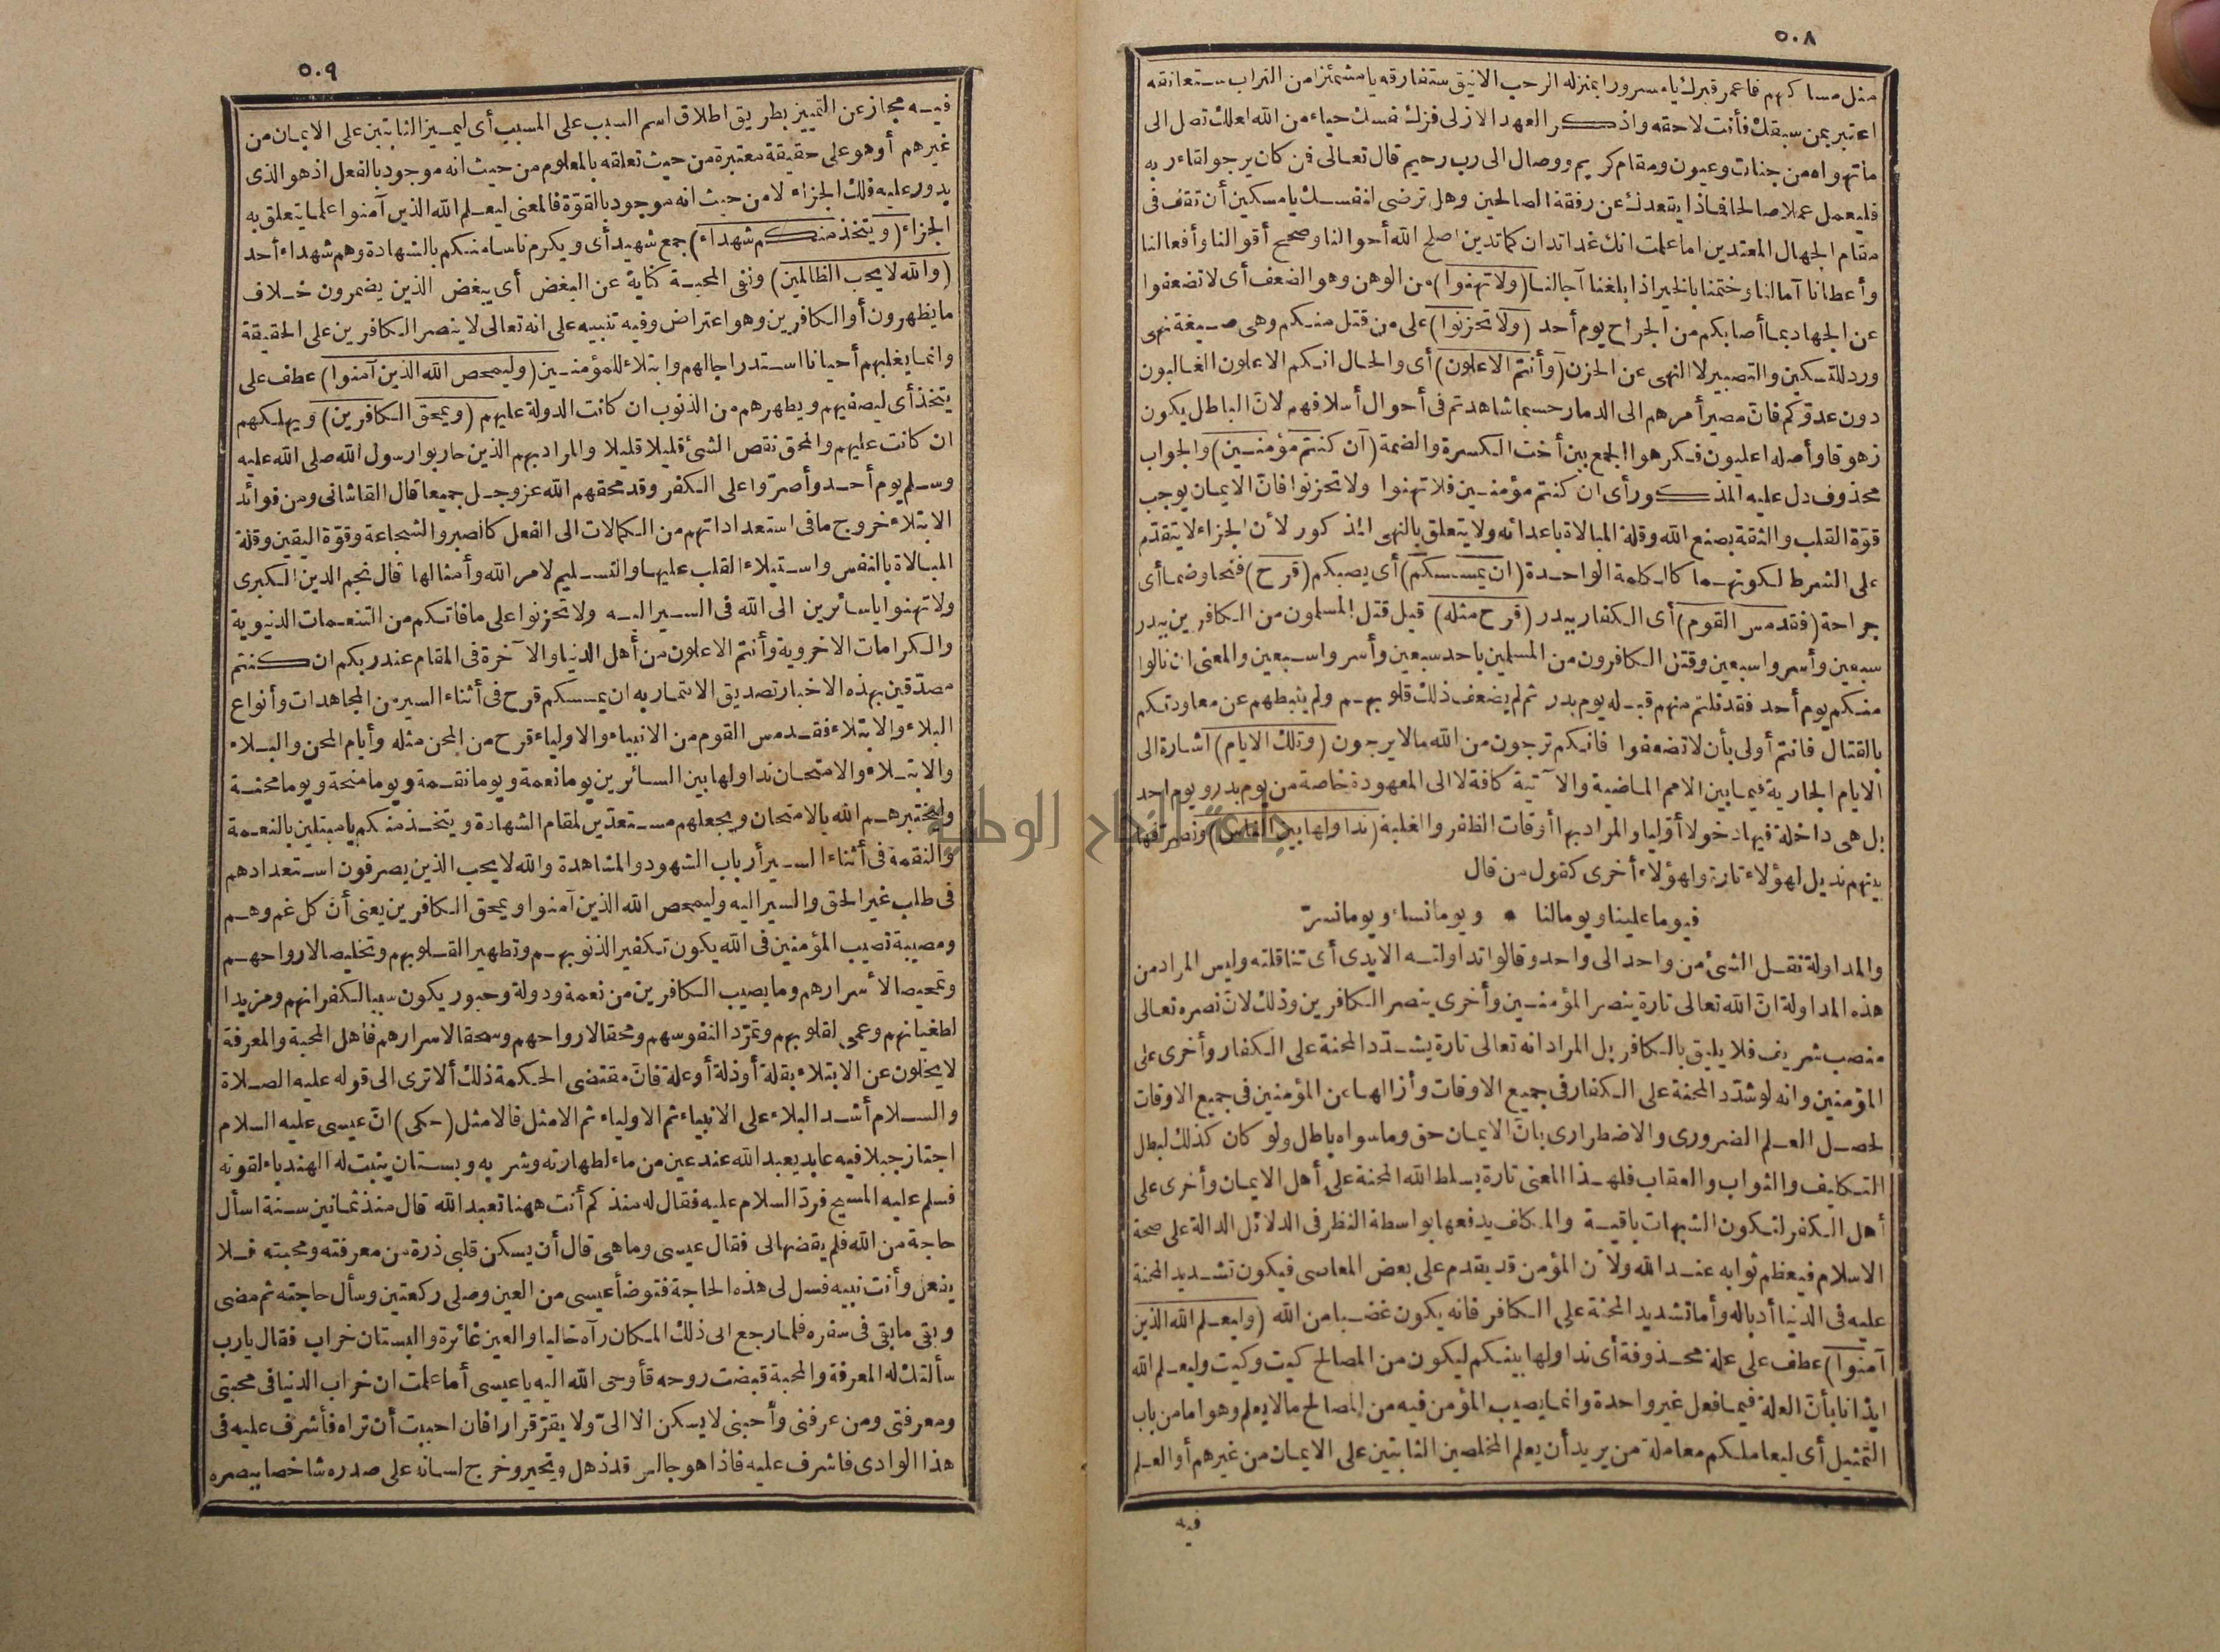 ٥٠٨
مثل مساكنهم فاعمر قبرك يا مسرورا بمنزله الرحب الانيق ستفارقه يا مشمئزا من التراب ستعانقه
اعتبر بمن سبقك فأنت لاحقه واذكر العهد الازلى فزك نفسك حياء من الله لعلك تصل الى
ماتهواه من جنات وعيون ومقام كريم ووصال الى رب رحيم قال تعالى فمن كان يرجو لقاء ربه
فليعمل عملا صالحا فماذا يقعدك عن رفقة الصالحين وهل ترضى لنفسك يا مسكين أن تقف فى
مقام الجهال المعتدين اما علمت انك غدا تدان كما تدين اصلح الله أحوالنا وصحح أقوالنا وأفعالنا
وأعطانا آمالنا وختمنا بالخير اذا بلغنا آجالنا (ولا تهنوا) من الوهن وهو الضعف أى لا تضعفوا
عن الجهاد بما أصابكم من الجراح يوم أحد (ولا تحزنوا) على من قتل منكم وهى صيغة نهى
ورد للتسكين والتصبير لا النهى عن الحزن (وأنتم الاعلون) أى والحال انكم الاعلون الغالبون
دون عدوّكم فانّ مصير أمرهم الى الدمار حسبما شاهدتم فى أحوال أسلافهم لانّ الباطل يكون
زهوقا وأصله اعليون فكرهوا الجمع بين أخت الكسرة والضمة (ان كنتم مؤمنين) والجواب
محذوف دل عليه المذكور أى ان كنتم مؤمنين فلا تهنوا ولا تحزنوا فانّ الايمان يوجب
قوّة القلب والثقة بصنع الله وقلة المبالاة باعدائه ولا يتعلق بالنهى المذكور لأن الجزاء لا يتقدّم
على الشرط لكونهما كالكلمة الواحدة (ان يمسسكم) أى يصبكم (قرح) فتحا وضما أى
جراحة (فقد مس القوم) أى الكفار ببدر (قرح مثله) قيل قتل المسلمون من الكافرين ببدر
سبعين وأسروا سبعين وقتل الكافرون من المسلمين باحد سبعين وأسروا سبعين والمعنى ان نالوا
منكم يوم أحد فقد نلتم منهم قبله يوم بدر ثم لم يضعف ذلك قلوبهم ولم يثبطهم عن معاودتكم
بالقتال فانتم أولى بأن لا تضعفوا فانكم ترجون من الله مالا يرجون (وتلك الايام) اشارة الى
الايام الجارية فيما بين الامم الماضية والآتية كافة لا الى المعهودة خاصة من يوم بدر ويوم احد
بل هى داخلة فيها دخولا أوليا والمراد بها أوقات الظفر والغلبة (نداولها بين الناس) ونصرّفها
بينهم نديل لهؤلاء تارة ولهؤلاء أخرى كقول من قال
فيوما علينا ويوما لنا • ويوما نساء ويوما نسرّ
والمداولة نقل الشئ من واحد الى واحد وقالوا تداولته الايدى أى تناقلته وليس المراد من
هذه المداولة انّ الله تعالى تارة ينصر المؤمنين وأخرى ينصر الكافرين وذلك لانّ نصره تعالى
منصب شريف فلا يليق بالكافر بل المراد انه تعالى تارة يشدّد المحنة على الكفار وأخرى على
المؤمنين وانه لو شدّد المحنة على الكفار فى جميع الاوقات وأزالها عن المؤمنين فى جميع الاوقات
لحصل العلم الضرورى والاضطرارى بانّ الايمان حق وما سواه باطل ولو كان كذلك لبطل
التكليف والثواب والعقاب فلهذا المعنى تارة يسلط الله المحنة على أهل الايمان وأخرى على
أهل الكفر لتكون الشبهات باقية والمكلف يدفعها بواسطة النظر فى الدلائل الدالة على صحة
الاسلام فيعظم ثوابه عند الله ولأن المؤمن قد يقدم على بعض المعاصى فيكون تشديد المحنة
عليه فى الدنيا أدبا له وأما تشديد المحنة على الكافر فانه يكون غضبا من الله (وليعلم الله الذين
آمنوا) عطف على علة محذوفة أى نداولها بينكم ليكون من المصالح كيت وكيت وليعلم الله
ايذانا بأنّ العلة فيما فعل غير واحدة وانما يصيب المؤمن فيه من المصالح مالا يعلم وهو اما من باب
التمثيل أى ليعاملكم معاملة من يريد أن يعلم المخلصين الثابتين على الايمان من غيرهم أو العلم
فيه
٥٠٩
فيه مجاز عن التمييز بطريق اطلاق اسم السبب على المسبب أى ليميز الثابتين على الايمان من
غيرهم أو هو على حقيقة معتبرة من حيث تعلقه بالمعلوم من حيث انه موجود بالفعل اذ هو الذى
يدور عليه فلك الجزاء لا من حيث انه موجود بالقوّة فالمعنى ليعلم الله الذين آمنوا علما يتعلق به
الجزاء (ويتخذ منكم شهداء) جمع شهيد أى ويكرم ناسا منكم بالشهادة وهم شهداء أحد
(والله لا يحب الظالمين) ونفى المحبة كناية عن البغض أى يبغض الذين يضمرون خلاف
ما يظهرون أو الكافرين وهو اعتراض وفيه تنبيه على انه تعالى لا ينصر الكافرين على الحقيقة
وانما يغلبهم أحيانا استدراجا لهم وابتلاء للمؤمنين (وليمحص الله الذين آمنوا) عطف على
يتخذ أى ليصفيهم ويطهرهم من الذنوب ان كانت الدولة عليهم (ويمحق الكافرين) ويهلكهم
ان كانت عليهم والمحق نقص الشئ قليلا قليلا والمراد بهم الذين حاربوا رسول الله صلى الله عليه
وسلم يوم أحد وأصرّوا على الكفر وقد محقهم الله عز وجل جميعا قال القاشانى ومن فوائد
الابتلاء خروج ما فى استعداداتهم من الكمالات الى الفعل كالصبر والشجاعة وقوّة اليقين وقلة
المبالاة بالنفس واستيلاء القلب عليها والتسليم لامر الله وأمثالها قال نجم الدين الكبرى
ولا تهنوا يا سائرين الى الله فى السير اليه ولا تحزنوا على ما فاتكم من التنعمات الدنيوية
والكرامات الاخروية وأنتم الاعلون من أهل الدنيا والآخرة فى المقام عند ربكم ان كنتم
مصدّقين بهذه الاخبار تصديق الائتمار به ان يمسسكم قرح فى أثناء السير من المجاهدات وأنواع
البلاء والابتلاء فقد مس القوم من الانبياء والاولياء قرح من المحن مثله وأيام المحن والبلاء
والابتلاء والامتحان نداولها بين السائرين يوما نعمة ويوما نقمة ويوما منحة ويوما محنة
وليختبرهم الله بالامتحان ويجعلهم مستعدّين لمقام الشهادة ويتخذ منكم يا مبتلين بالنعمة
والنقمة فى أثناء السير أرباب الشهود والمشاهدة والله لا يحب الذين يصرفون استعدادهم
فى طلب غير الحق والسير اليه وليمحص الله الذين آمنوا ويمحق الكافرين يعنى أنّ كل غم وهم
ومصيبة تصيب المؤمنين فى الله يكون تكفيرا لذنوبهم وتطهيرا لقلوبهم وتخليصا لارواحهم
وتمحيصا لأسرارهم وما يصيب الكافرين من نعمة ودولة وحبور يكون سببا لكفرانهم ومزيدا
لطغيانهم وعمى لقلوبهم وتمرّدا لنفوسهم ومحقا لارواحهم وسحقا لاسرارهم فأهل المحبة والمعرفة
لا يخلون عن الابتلاء بقلة أو ذلة أو علة فانّ مقتضى الحكمة ذلك ألا ترى الى قوله عليه الصلاة
والسلام أشد البلاء على الانبياء ثم الاولياء ثم الامثل فالامثل (حكى) انّ عيسى عليه السلام
اجتاز جبلا فيه عابد يعبد الله عند عين من ماء لطهارته وشربه وبستان ينبت له الهندباء لقوته
فسلم عليه المسيح فردّ السلام عليه فقال له منذ كم أنت ههنا تعبد الله قال منذ ثمانين سنة اسأل
حاجة من الله فلم يقضها لى فقال عيسى وما هى قال أن يسكن قلبى ذرة من معرفته ومحبته فلا
يفعل وأنت نبيه فسل لى هذه الحاجة فتوضأ عيسى من العين وصلى ركعتين وسأل حاجته ثم مضى
وبقى ما بقى فى سفره فلما رجع الى ذلك المكان رآه خاليا والعين غائرة والبستان خراب فقال يارب
سألتك له المعرفة والمحبة قبضت روحه فأوحى الله اليه يا عيسى أما علمت ان خراب الدنيا فى محبتى
ومعرفتى ومن عرفنى وأحبنى لا يسكن الا الىّ ولا يقرّ قرارا فان احببت أن تراه فأشرف عليه فى
هذا الوادى فاشرف عليه فاذا هو جالس قد ذهل وتحير وخرج لسانه على صدره شاخصا ببصره
جامعة النجاح الوطنية